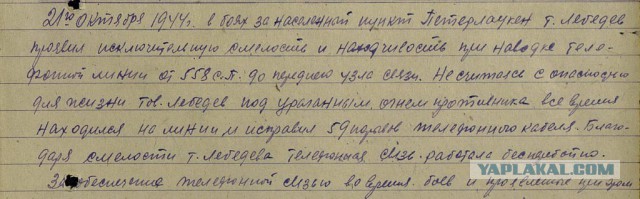 21го Октября 1944г. в боях за населенный пункт Петерлаукен т. Лебедев
проявил исключительную смелость и находчивость при наводке теле-
фонной линии от 558 с.п. до переднего узла связи. Не считаясь с опасностью
для жизни тов. Лебедев под ураганным огнем противника все время
находился на линии и исправил 59 порывов телефонного кабеля. Благо-
даря смелости т. Лебедева телефонная связь работала бесперебойно.
За обеспечение телефонной связью во время боев и проявленные при этом
YAPLAKAL.COM